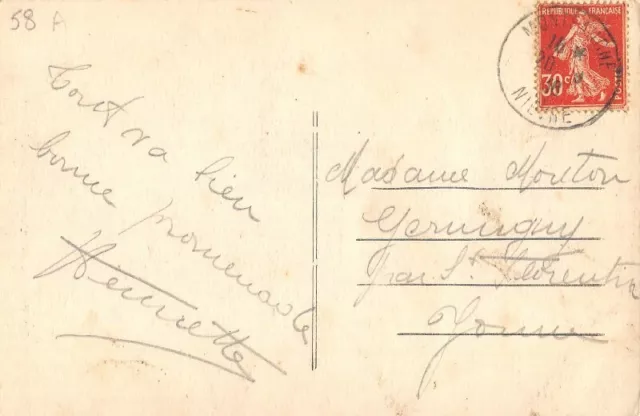 58 A
REPUBLIQUE FRANÇAISE
30c
POSTES
NIEVRE
Tout va bien
bonne promenade
Henriette
Madame Mouton
Germigny
par St Florentin
Yonne